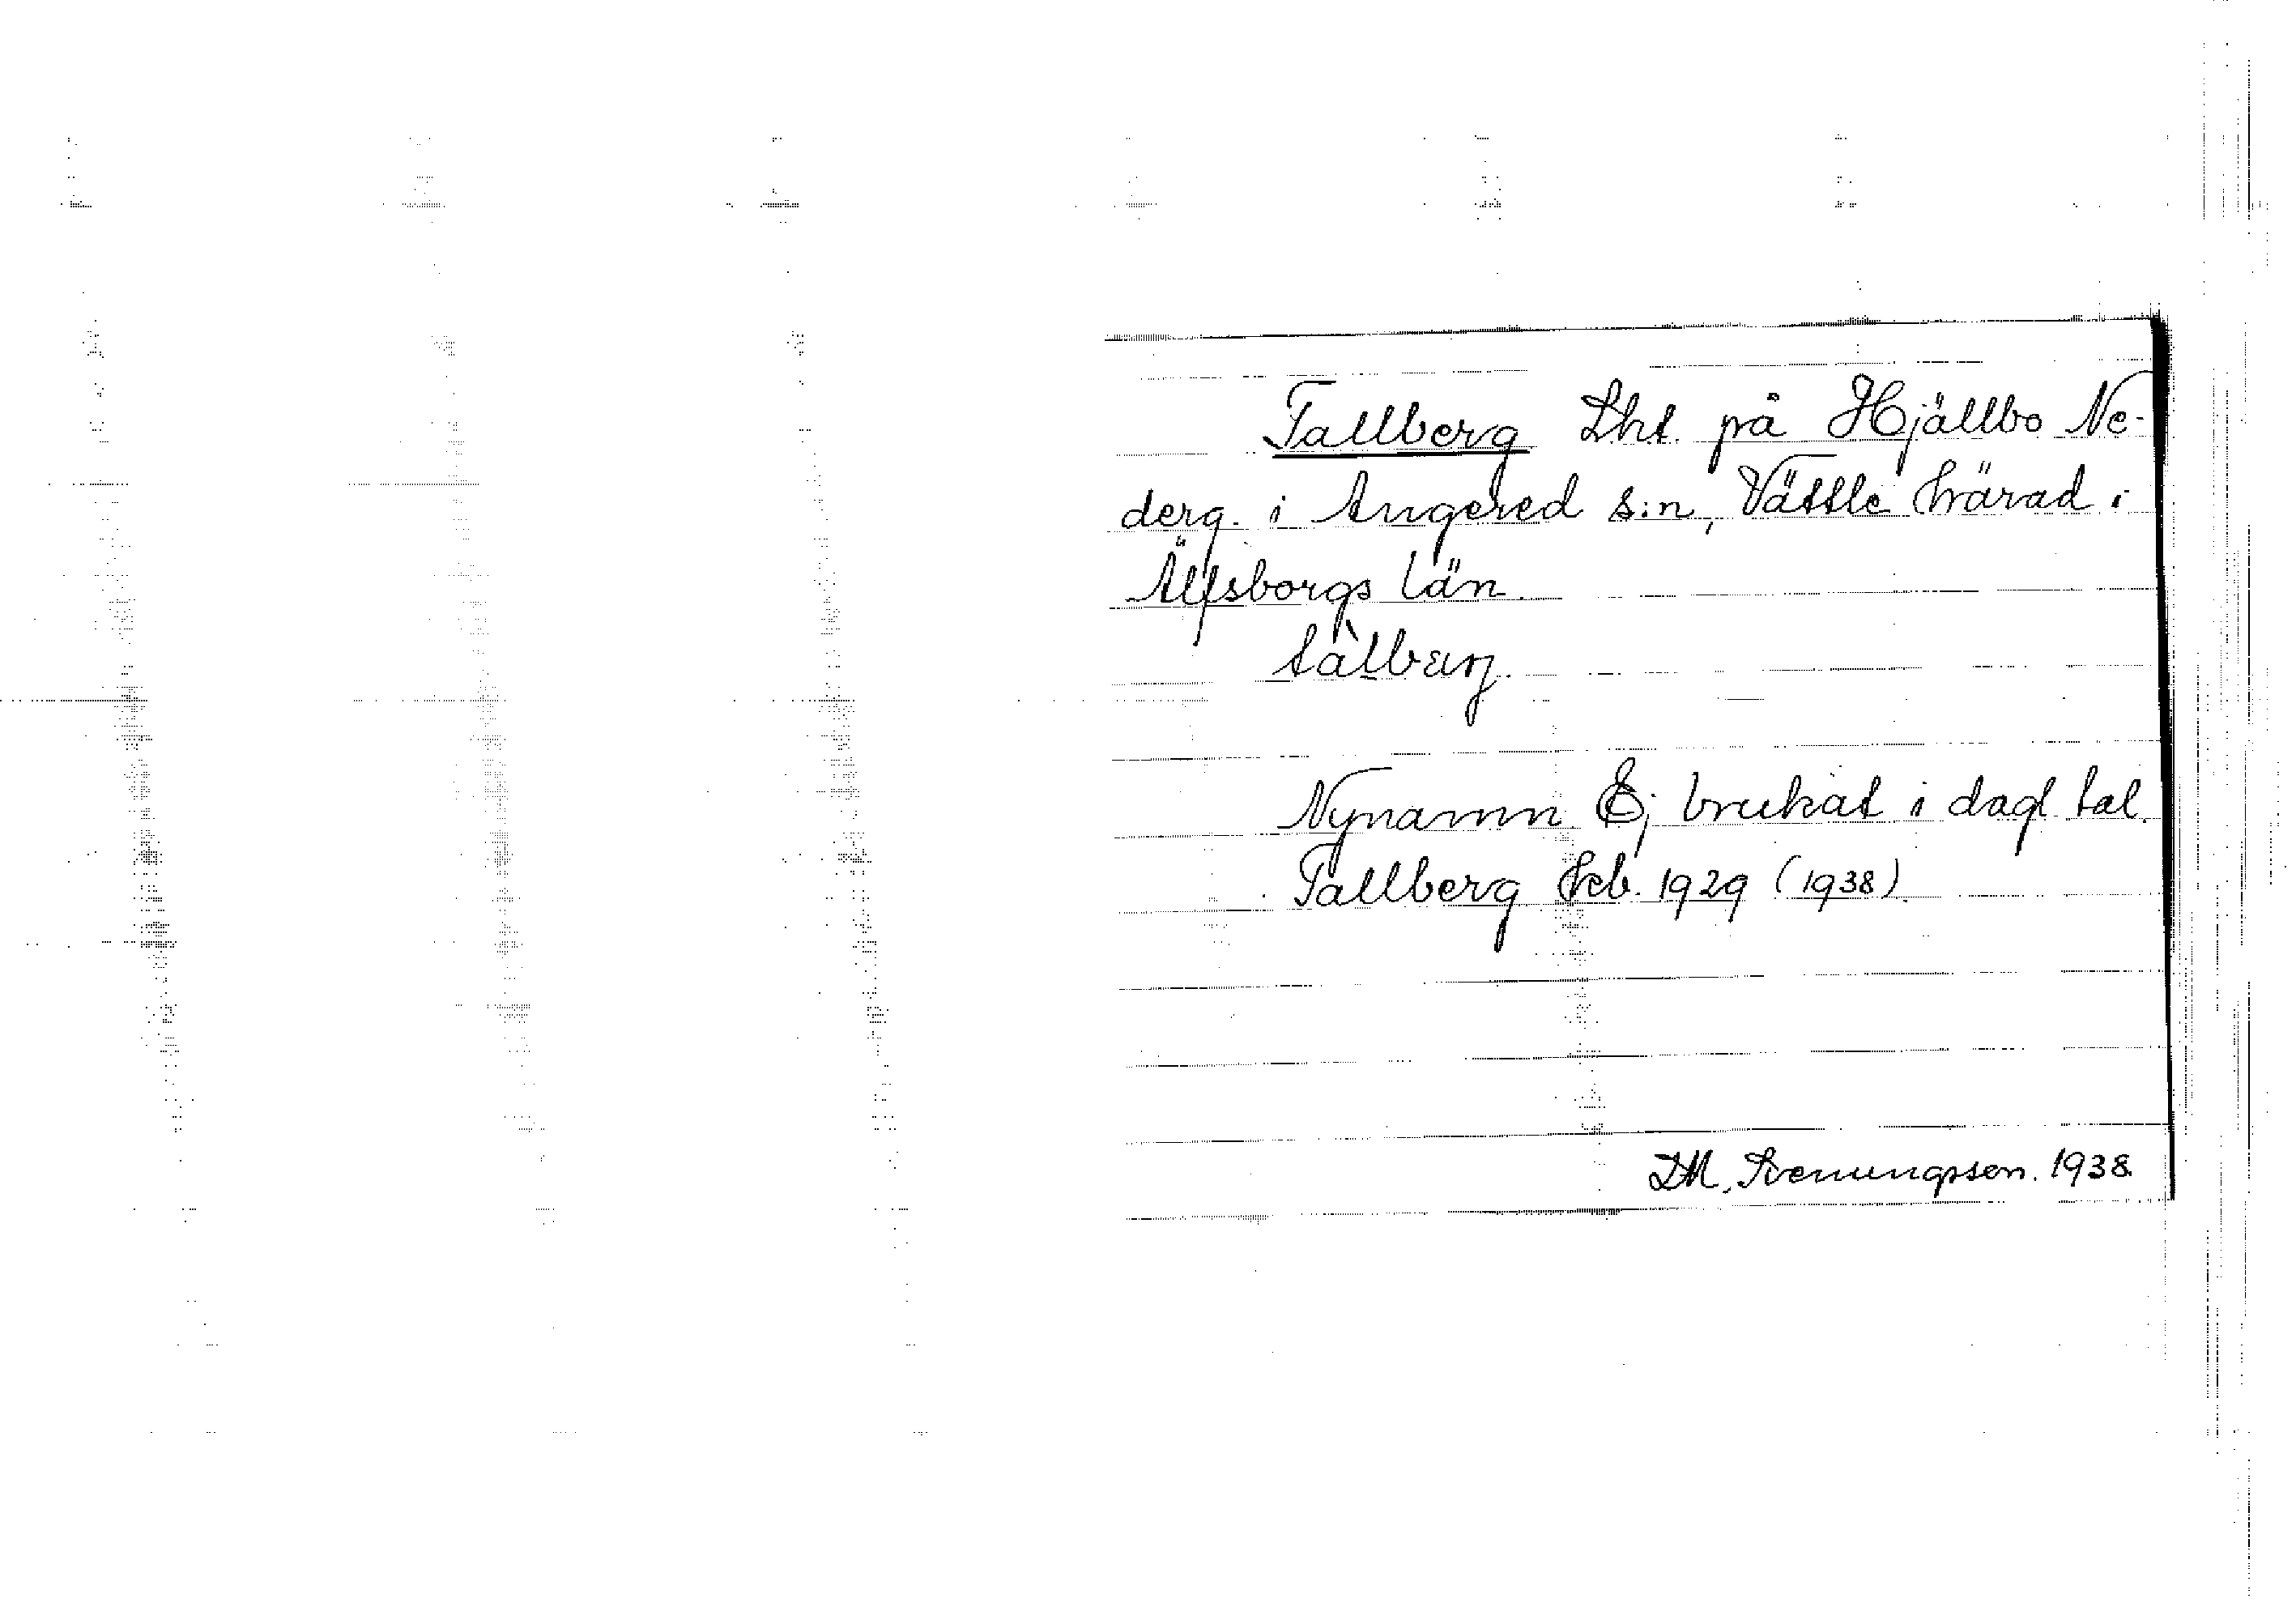 Tallberg Lht. på Hjällbo Ne-
derg. i Angered s:n, Vättle härad i
Älfsborgs län.
tàlbærj.
Nynamn. Ej brukat i dagl. tal.
Tallberg frb. 1929 (1938).
D.M. Svenungsson. 1938